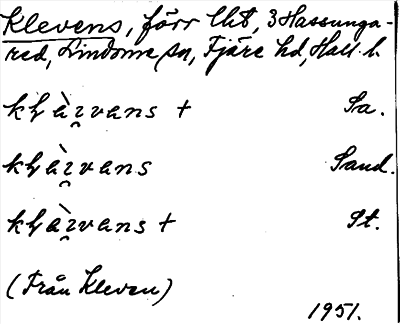 Klevens, förr lht, 3 Hassunga-
red, Lindome sn, Fjäre hd, Hall. l.
kḷàɪ̯vans + Sa.
kḷàɪ̯vans Sand.
kḷàɪ̯vans + St.
(Från Kleven)
1951.